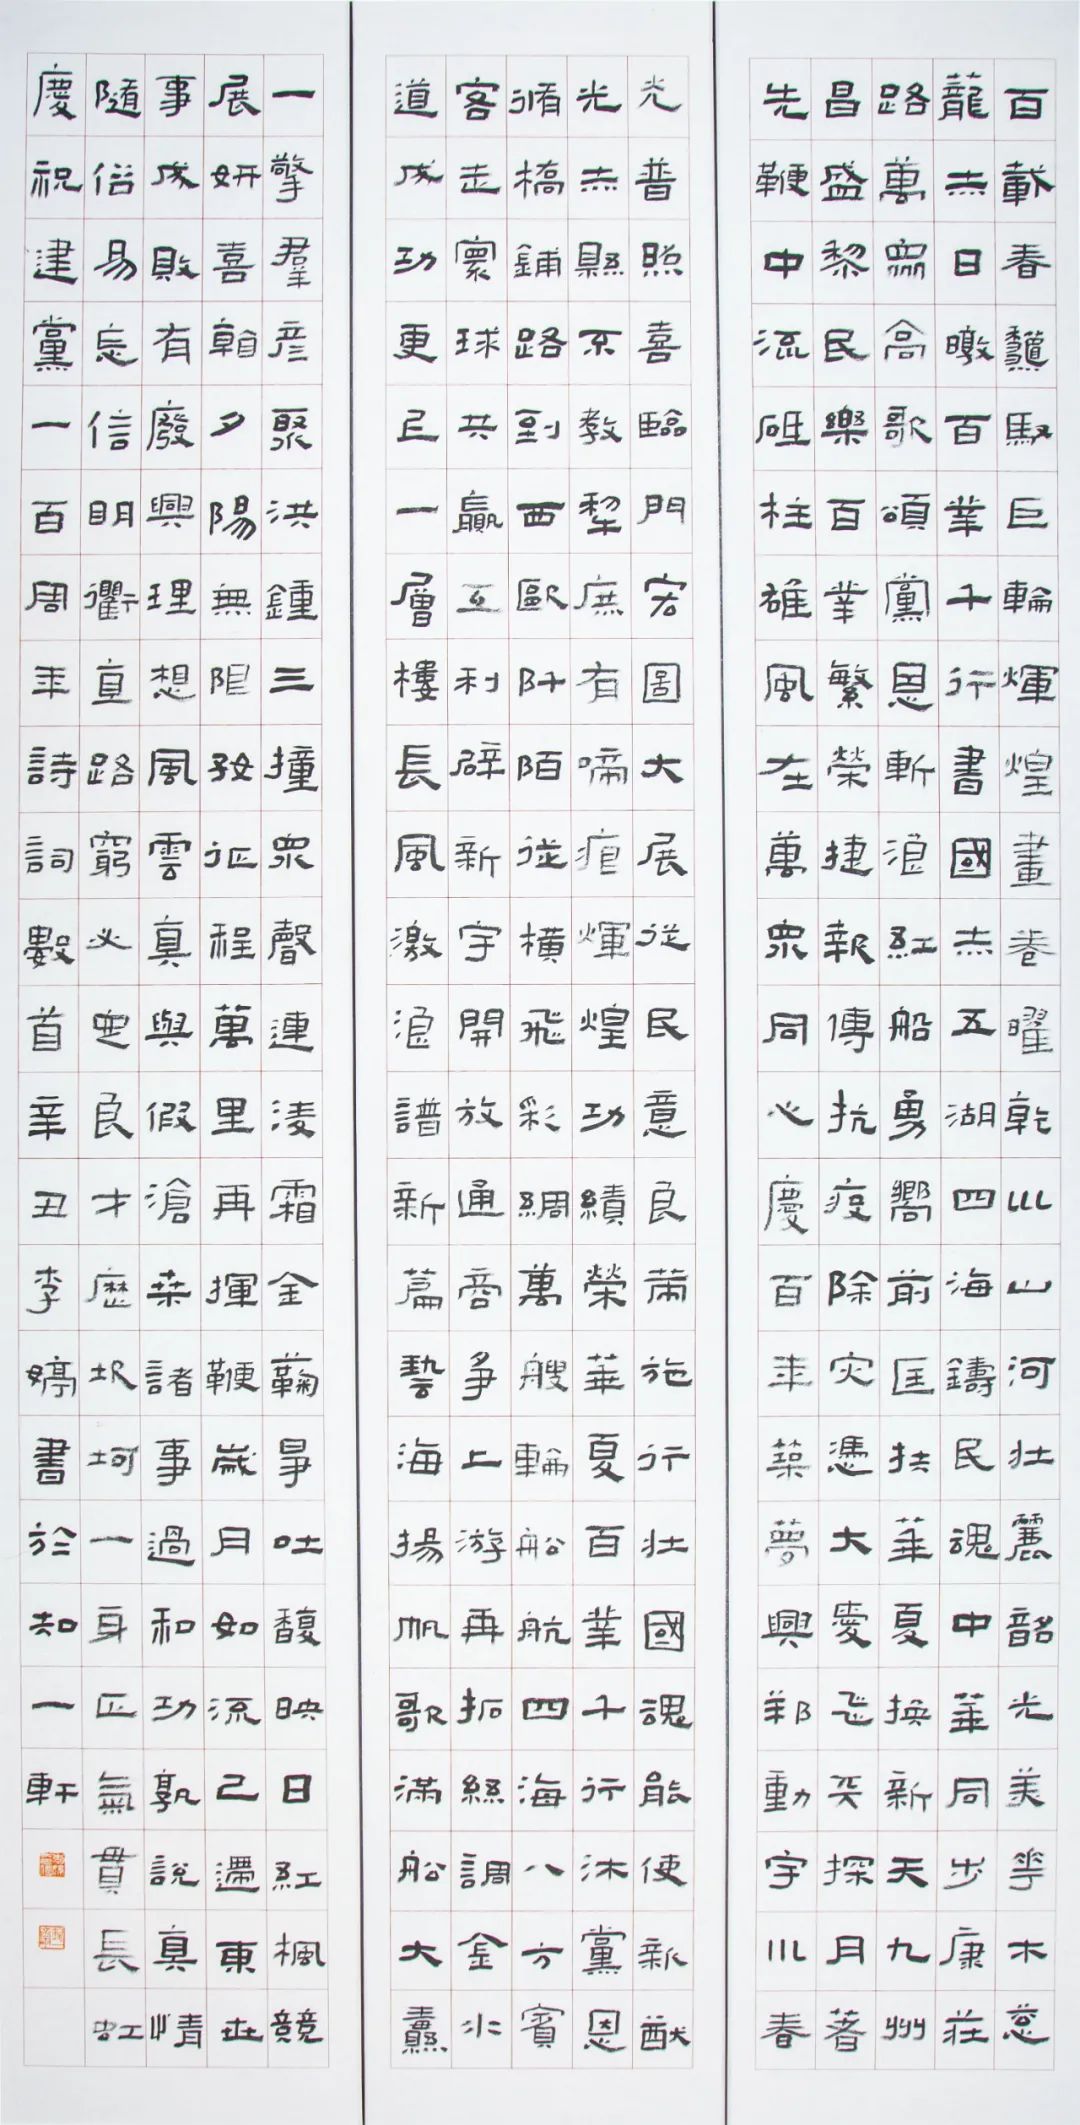 百載春龝馭巨輪輝煌畫卷曜乾巛山河壯麗韶光美花木蔥
蘢赤日暾百業千行書國赤五湖四海鑄民魂中華同步康莊
路萬眾高歌頌黨恩斬浪紅船勇嚮前匡扶華夏換新天九州
昌盛黎民樂百業繁榮捷報傳抗疫除災憑大愛飛天探月著
先鞭中流砥柱雄風在萬眾同心慶百年築夢興邦動宇川春
光普照喜臨門宏圖大展從民意良策施行壯國魂能使新猷
光赤縣不教犁庶有啼痕輝煌功績榮華夏百業千行沐黨恩
脩橋鋪路到西歐阡陌從橫飛彩綢萬艘輪船航四海八方賓
客走寰球共贏互利辟新宇開放通商爭上游再拓絲調金水
道成功更已一層樓長風激浪譜新篇藝海揚帆歌滿船大纛
一擎群彥聚洪鐘三撞眾聲連凌霜金鞠爭吐馥映日紅楓競
展妍喜翰夕陽無限好征程萬里再揮鞭歲月如流已遇東世
事成敗有廢興理想風雲真與假滄桑諸事過和功孰說真情
隨俗易忘信明衢直路窮必忠良才歷坎坷一身正氣貫長虹
慶祝建黨一百周年詩詞數首辛丑李婷書於知一軒